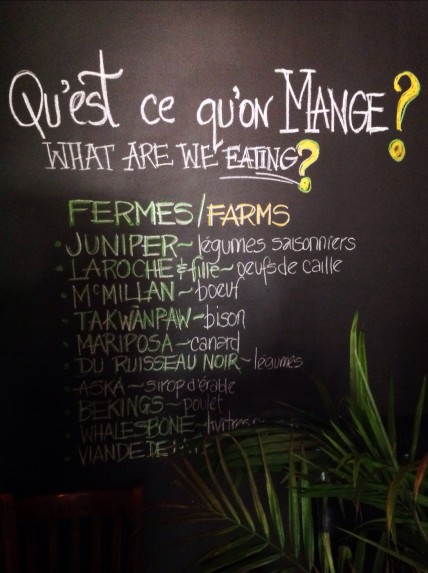 Qu'est ce qu'on MANGE?
WHAT ARE WE EATING?
FERMES/FARMS
• JUNIPER~légumes saisonniers
• LAROCHE & fille~oeufs de caille
• McMILLAN~boeuf
• TAKWĀNPAW~bison
• MARIPOSA~canard
• DU RUISSEAU NOIR~légumes
• ASKA~sirop d'érable
• BEKINGS~poulet
• WHALESBONE~huîtres
• VIANDE DE